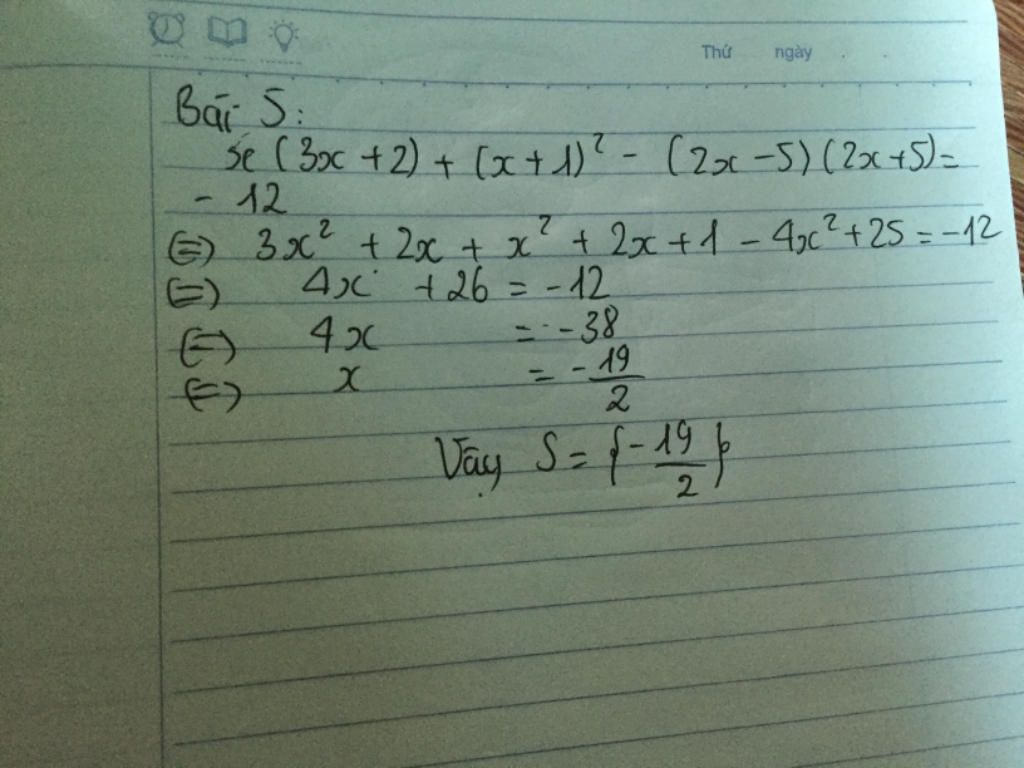 Thứ ngày . .
Bài 5:
x(3x+2) + (x+1)² - (2x-5)(2x+5) =
- 12
(=) 3x² + 2x + x² + 2x + 1 - 4x² + 25 = -12
(=) 4x + 26 = -12
(=) 4x = -38
(=) x = -19/2
Vậy S = {-19/2}